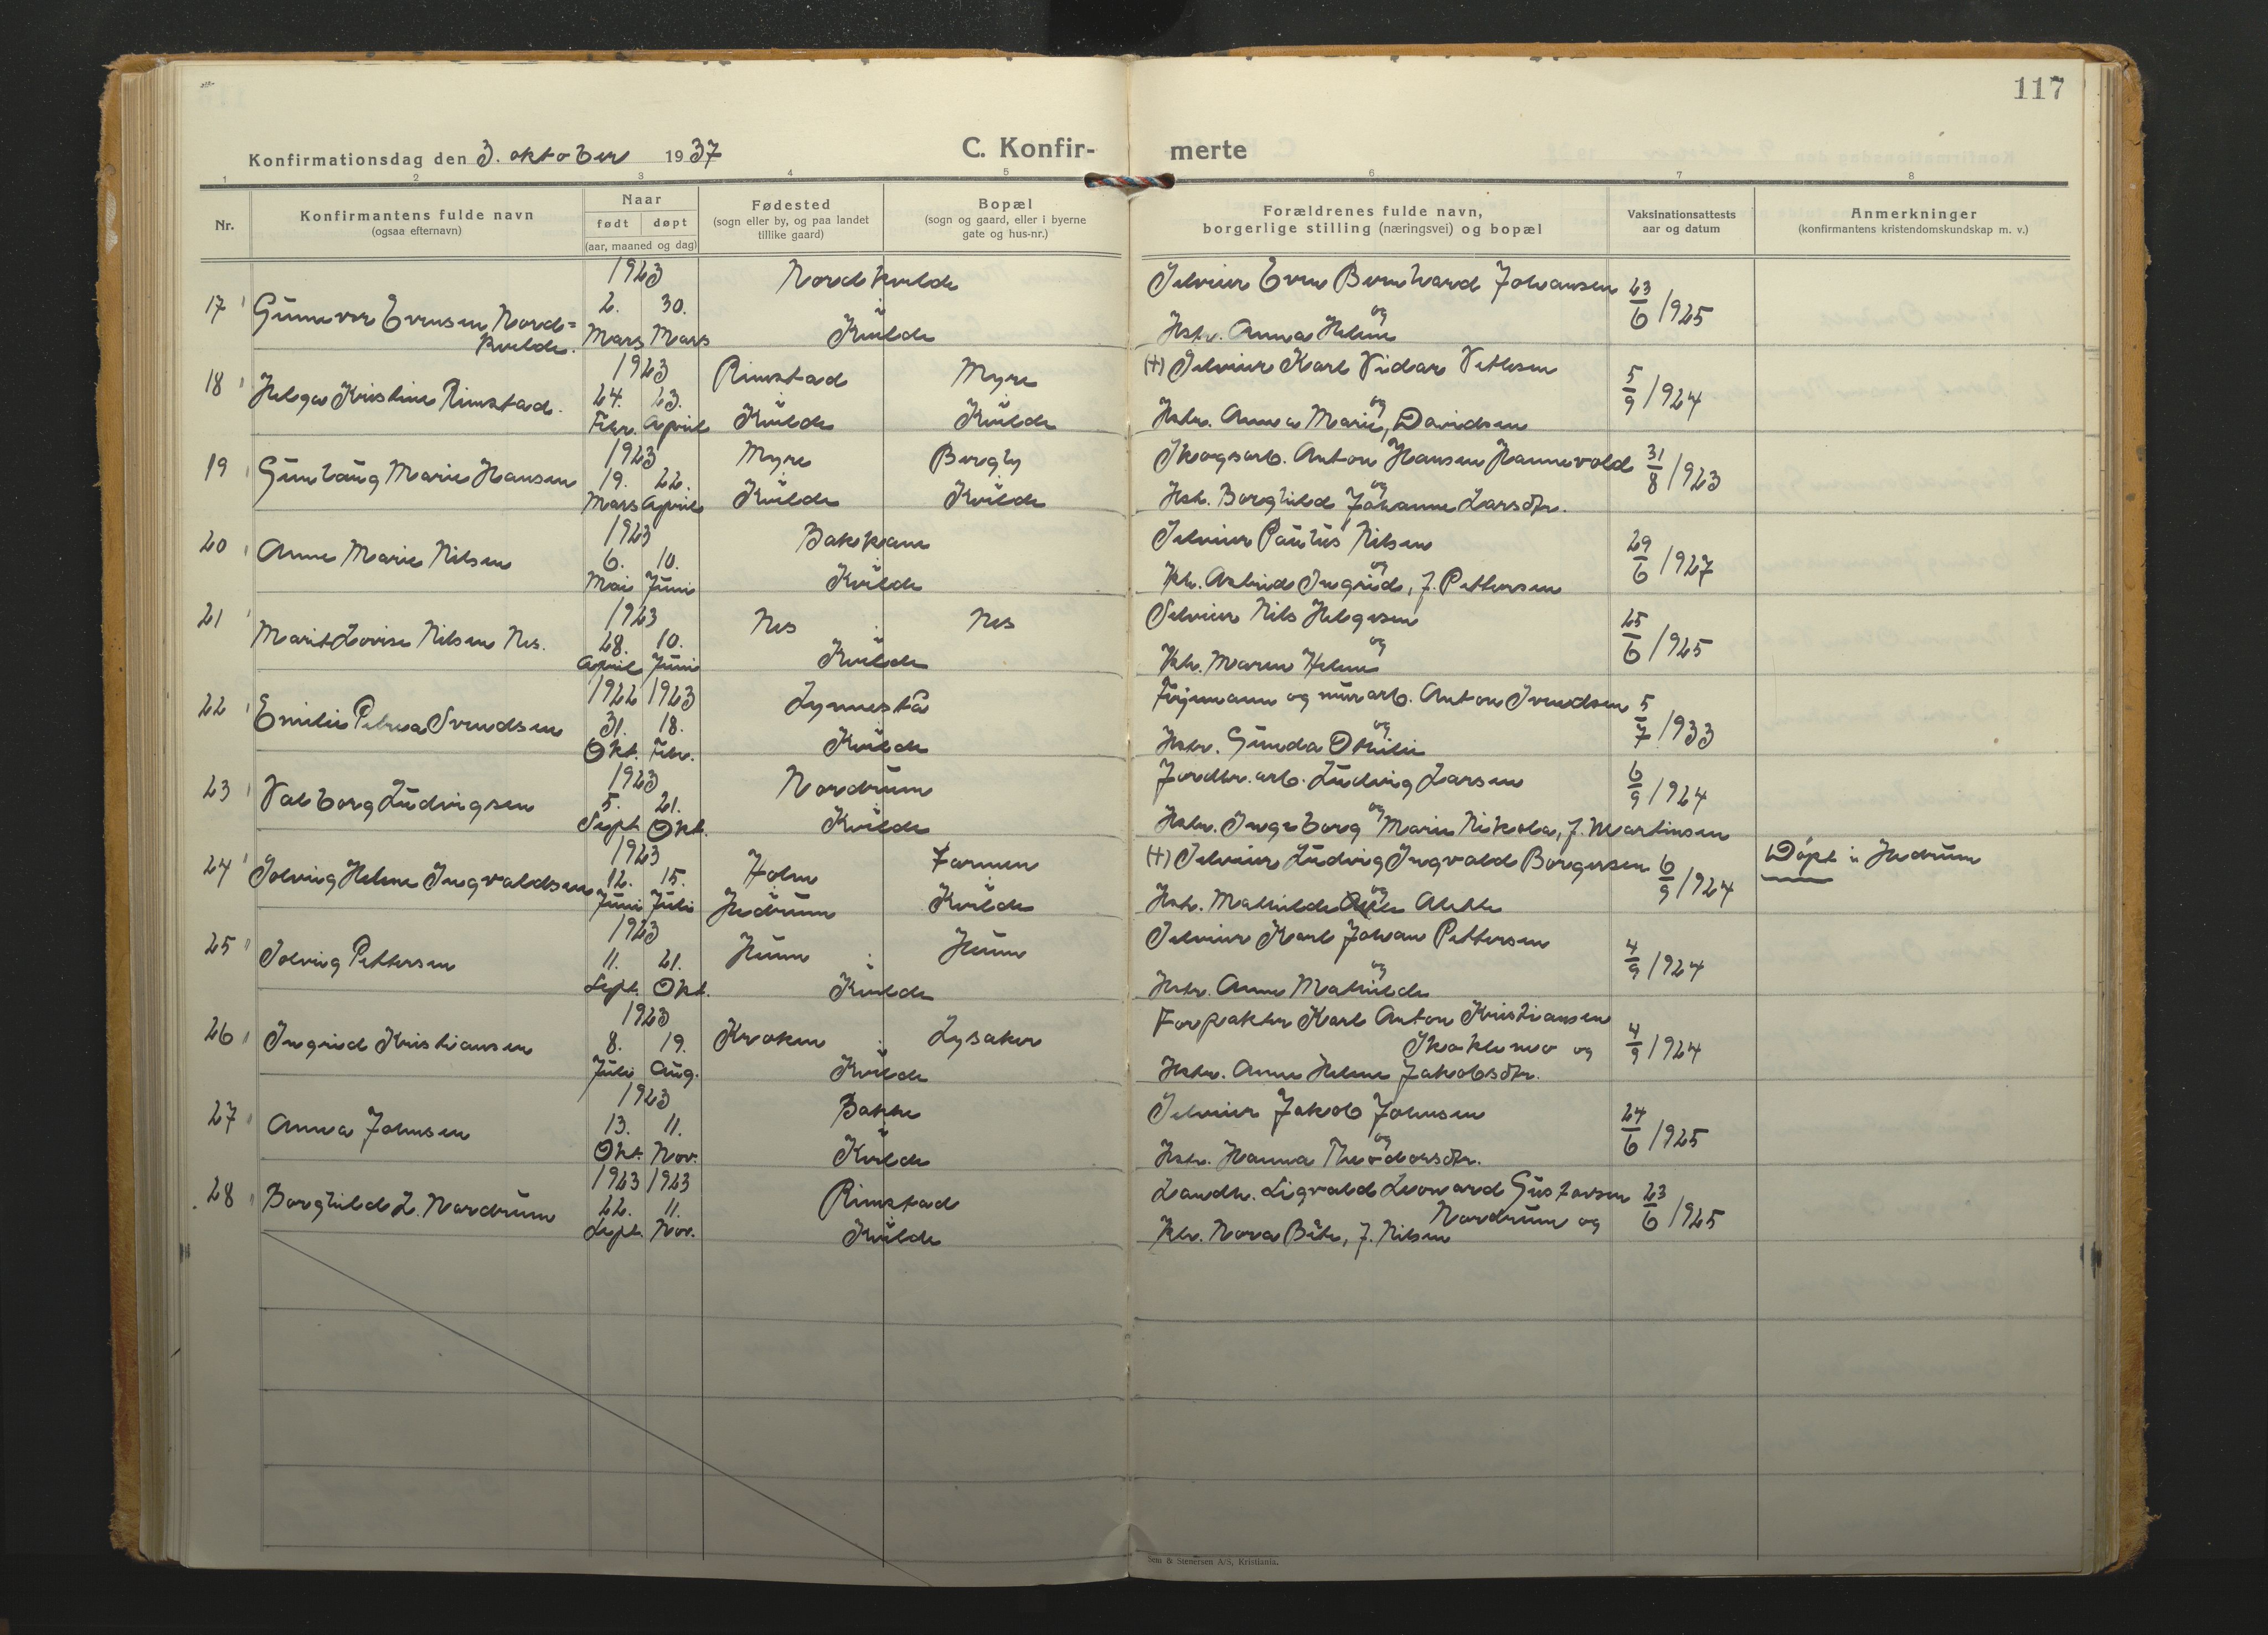 117
Konfirmationsdag den 3. oktober 1937
C. Konfir- merte
1 2 3 4 5 6 7 8
Nr.
Konfirmantens fulde navn
(ogsaa efternavn)
Naar
født døpt
(aar, maaned og dag)
Fødested
(sogn eller by, og paa landet
tillike gaard)
Bopæl
(sogn og gaard, eller i byerne
gate og hus-nr.)
Forældrenes fulde navn,
borgerlige stilling (næringsvei) og bopæl
Vaksinationsattests
aar og datum
Anmerkninger
(konfirmantens kristendomskundskap m. v.)
1923 Nordkvelde Selveier Even Bernhard Johansen 23/6 1925
17 Gunnvor Evensen Nord= 2. 30. og
kvelde. Mars Mars Kvelde Hstr. Anna Helene
1923 Rimstad Myre (+) Selveier Karl Vidar Vettesen 5/9 1924
18 Helga Kristine Rimstad. 24. 23. og
Febr. April Kvelde Kvelde Hstr. Anna Marie, Davidsen
1923 Myre Bergly Skogsarb. Anton Hansen Hannevold 31/8 1923
19 Gunlaug Marie Hansen 19. 22. og
Mars April Kvelde Kvelde Hstr. Borghild Johanne Larsdtr.
1923 Bakskaun Selveier Paulus Nilsen 29/6 1927
20 Anne Marie Nilsen 6. 10. og
Mai Juni Kvelde Hstr. Astrid Ingrid, f. Pettersen
1923 Nes Nes Selveier Nils Helgesen 25/6 1925
21 Marit Lovise Nilsen Nes. 28. 10. og
April Juni Kvelde Hstr. Maren Helene
1922 1923 Lynnestå Fyrmann og murarb. Anton Svendsen 5/7 1933
22 Emilie Petrea Svendsen 31. 18. og
Okt. Febr. Kvelde Hstr. Gunda Otilie
1923 Nordrum Jordbr.arb. Ludvig Larsen 6/9 1924
23 Valborg Ludvigsen 5. 21. og
Sept. Okt. Kvelde Hstr. Ingeborg Marie Nikola, f. Martinsen
1923 Holm Farmen (+) Selveier Ludvig Ingvald Borgersen 6/9 1924 Døpt i Hedrum
24 Solveig Helene Ingvaldsen 12. 15. og
Juni Juli Hedrum Kvelde Hstr. Mathilde Alette
1923 Heum Heum Selveier Karl Johan Pettersen 4/9 1924
25 Solveig Pettersen 11. 21. og
Sept. Okt. Kvelde Hstr. Anne Mathilde
1923 Kroken Lysaker Forpakter Karl Anton Kristiansen 4/9 1924
26 Ingrid Kristiansen 8. 19. og
Juli Aug. Kvelde Hstr. Anne Helene Jakobsdtr.
1923 Bakke Selveier Jakob Johnsen 24/6 1925
27 Anna Johnsen 13. 11. og
Okt. Nov. Kvelde Hstr. Hanna Theodorsdtr.
1923 1923 Rimstad Landh. Sigvald Leonard Gustavsen 23/6 1925
28 Borghild L. Nordrum 22. 11. Nordrum og
Sept. Nov. Kvelde Hstr. Nora f. Nilsen
Sem & Stenersen A/S, Kristiania.